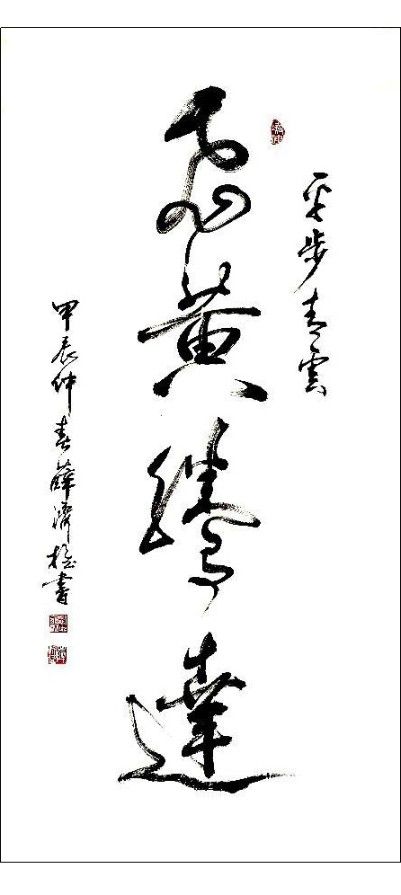 平步青雲
飛黄騰達
甲辰仲春薛濟書